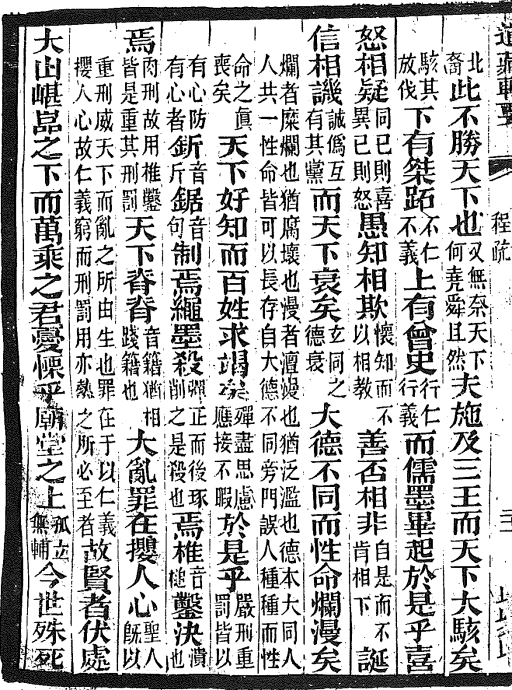 道藏輯要
程疏
北裔此不勝天下也又無奈天下何堯舜且然夫施及三王而天下大駭矣
駭其放伐下有桀跖不仁不義上有曾史行仁行義而儒墨畢起於是乎喜
怒相疑同己則喜異己則怒愚知相欺懷知而不以相教善否相非自是而不肯相下誕
信相譏誠僞互有其黨而天下衰矣玄同之德衰大德不同而性命爛漫矣
爛者糜爛也猶腐壞也漫者澶漫也猶泛濫也德本大同人
人共一性命皆可以長存自大德不同旁門誤人種種而性
命之眞喪矣天下好知而百姓求竭矣殫盡思慮應接不暇於是乎嚴刑重罰皆以
有心防有心者釿音斤鋸音句制焉繩墨殺彈正而後琢削之是殺也焉椎音槌鑿決潰也
焉肉刑故用椎鑿皆是重其刑罰天下脊脊音籍猶相踐籍也大亂罪在攖人心聖人旣以
重刑威天下而亂之所由生也罪在于以仁義攖人心故仁義窮而刑罰用亦勢之所必至者故賢者伏處
大山嵁嵒之下而萬乘之君憂慄乎廟堂之上孤立無輔今世殊死